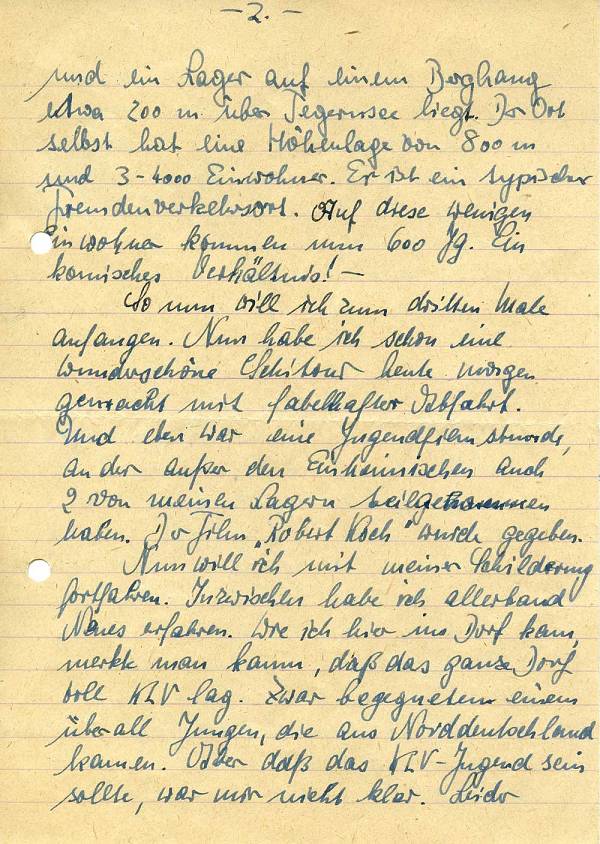 - 2. -
und ein Lager auf einem Berghang
etwa 200 m über Tegernsee liegt. Der Ort
selbst hat eine Höhenlage von 800 m
und 3-4000 Einwohner. Er ist ein typischer
Fremdenverkehrsort. Auf diese wenigen
Einwohner kommen nun 600 Jg. Ein
komisches Verhältnis! —
So nun will ich zum dritten Male
anfangen. Nun habe ich schon eine
wunderschöne Schitour heute morgen
gemacht mit fabelhafter Abfahrt.
Und eben war eine Jugendfilmstunde,
an der außer den Einheimischen auch
2 von meinen Lagern teilgenommen
haben. Der Film „Robert Koch" wurde gegeben.
Nun will ich mit meiner Schilderung
fortfahren. Inzwischen habe ich allerhand
Neues erfahren. Wie ich hier ins Dorf kam,
merkte man kaum, daß das ganze Dorf
voll KLV lag. Zwar begegneten einem
überall Jungen, die aus Norddeutschland
kamen. Aber daß das KLV-Jugend sein
sollte, war mir nicht klar. Leider